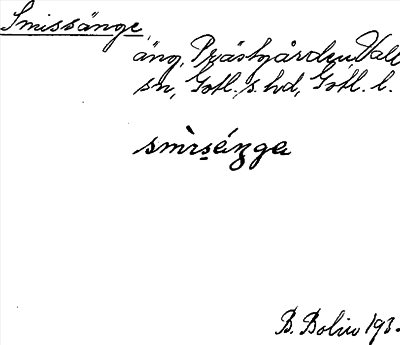 Smissänge,
äng, Prästgården, Vall
sn, Gotl. s. hd, Gotl. l.
smìsǝ́ŋga
B. Bolin 193